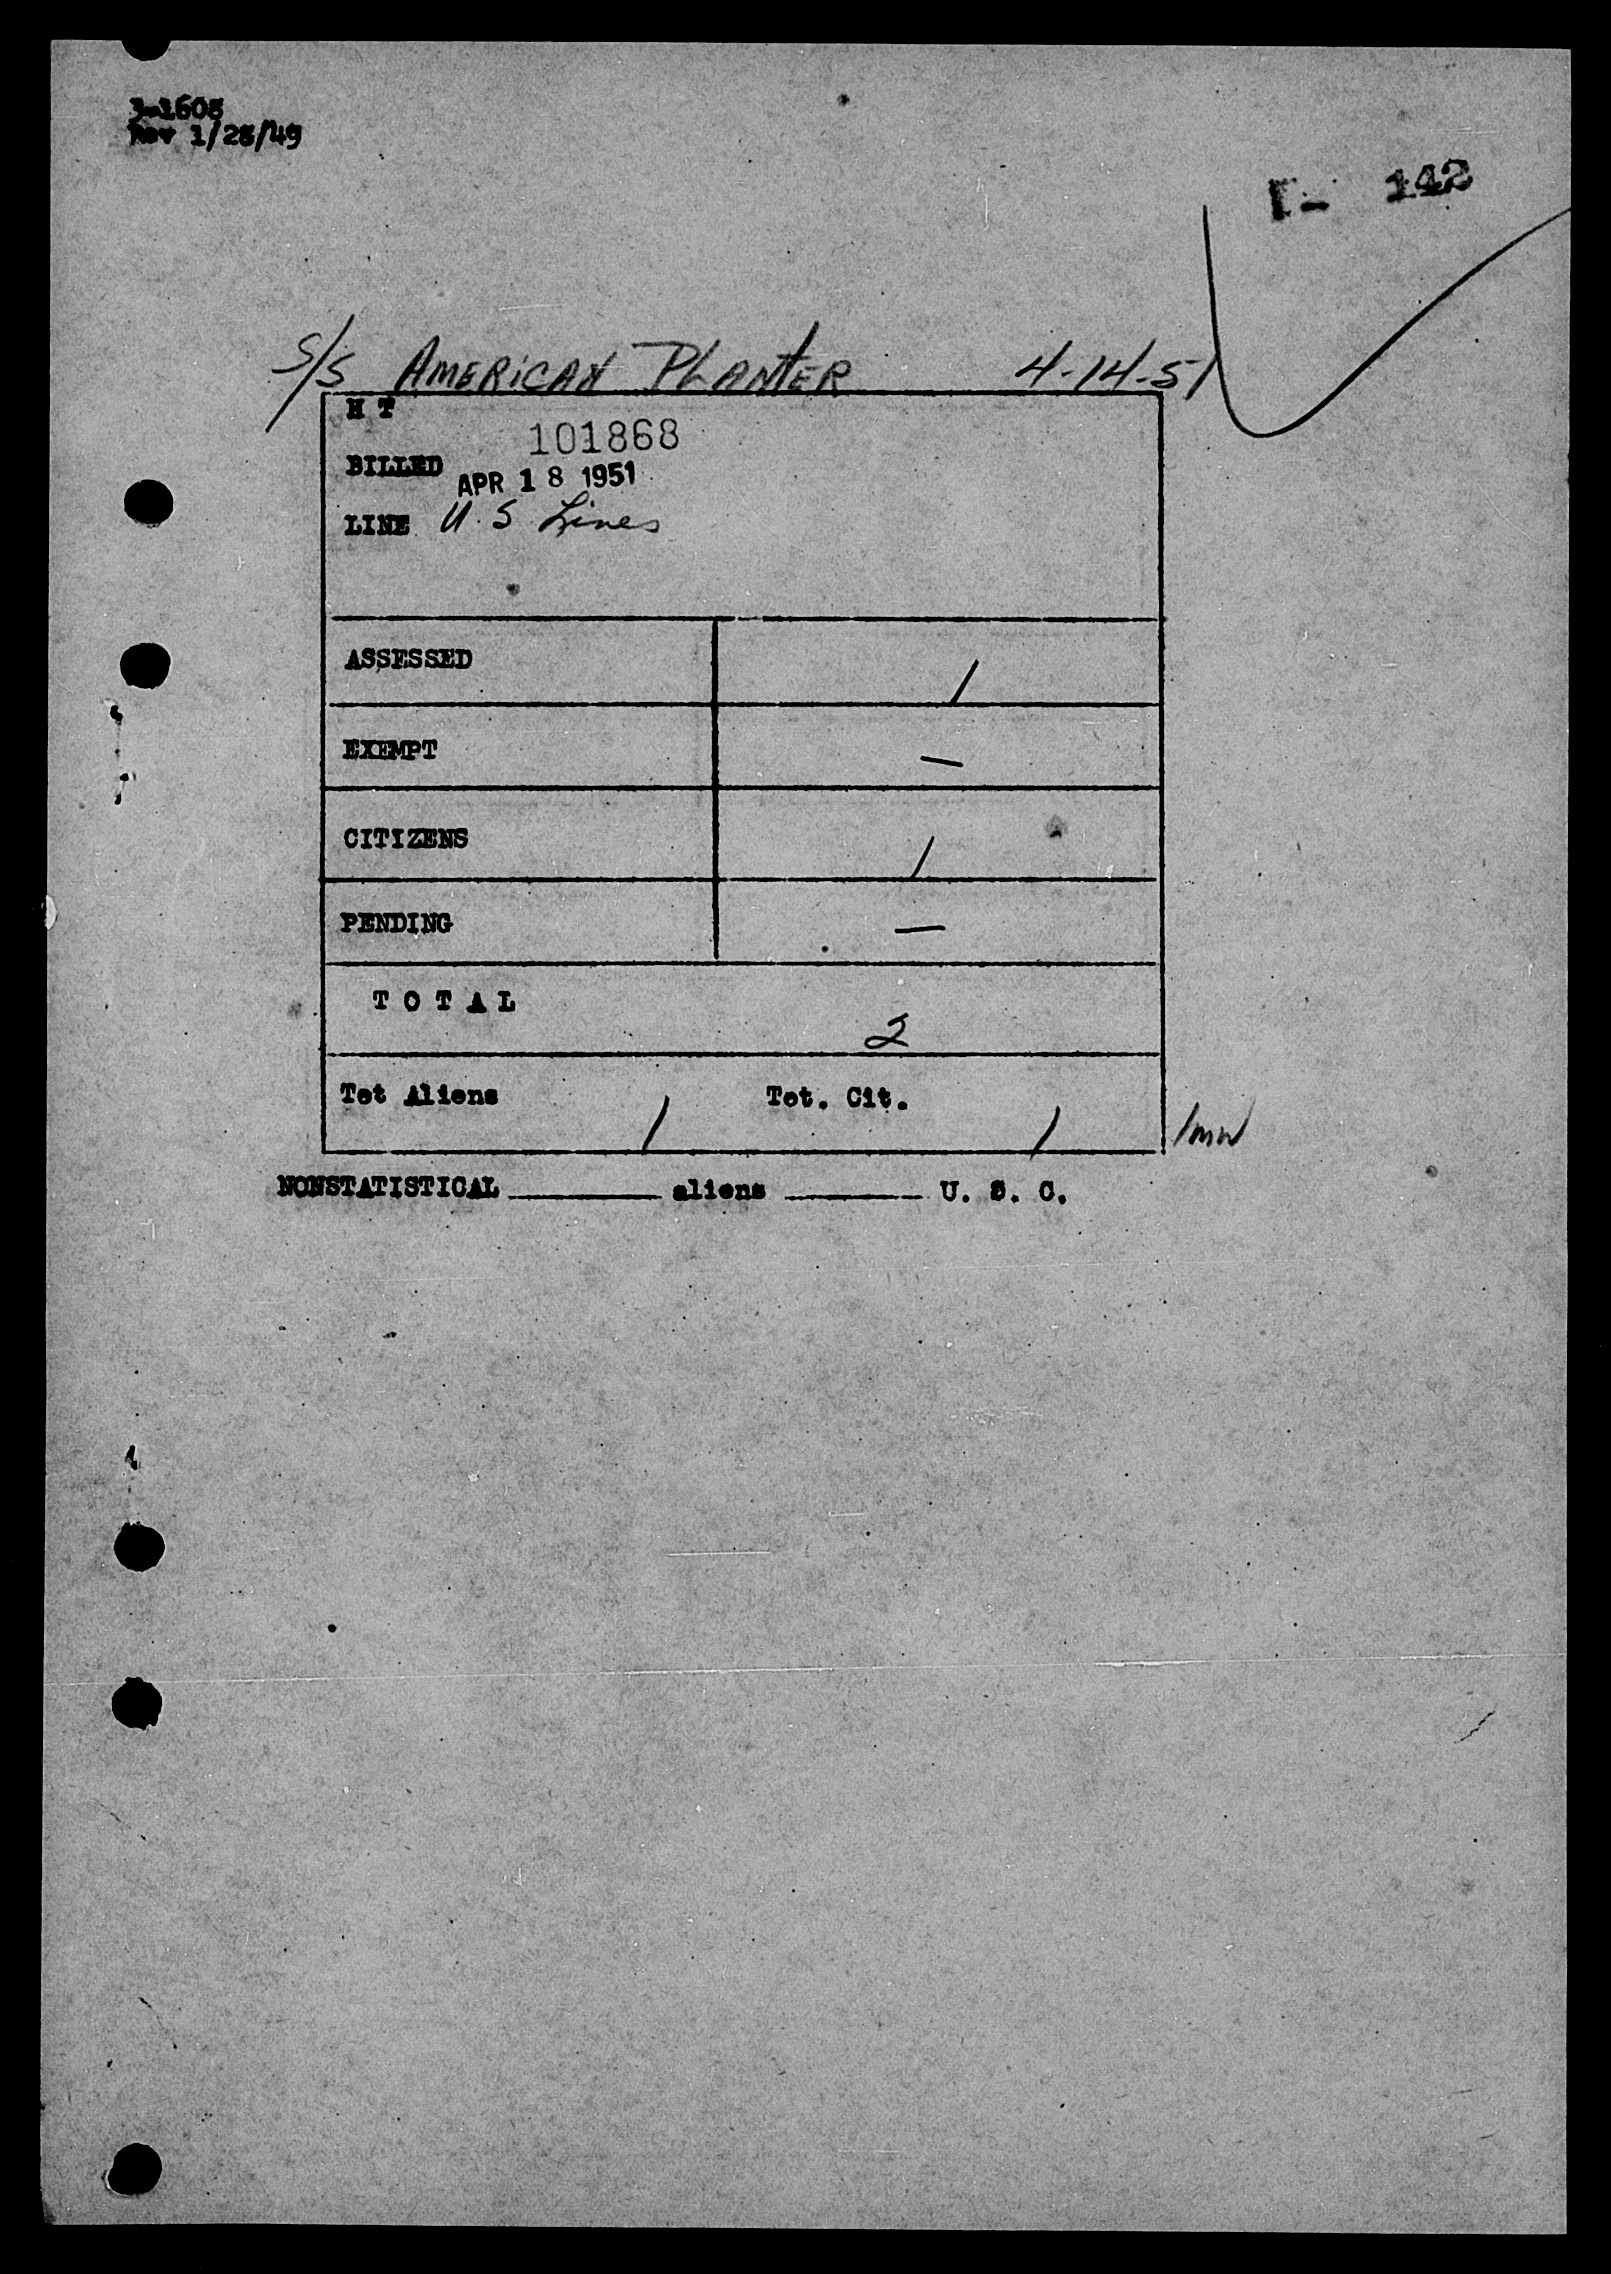 3-1608
Rev 1/28/49
I- 142
S/S AMERICAN PLANTER 4-14-51
H T
101868
BILLED
APR 18 1951
LINE U.S Lines
ASSESSED 1
EXEMPT —
CITIZENS 1
PENDING —
T O T A L 2
Tot Aliens 1 Tot. Cit. 1
NONSTATISTICAL ________ aliens ________ U. S. C.